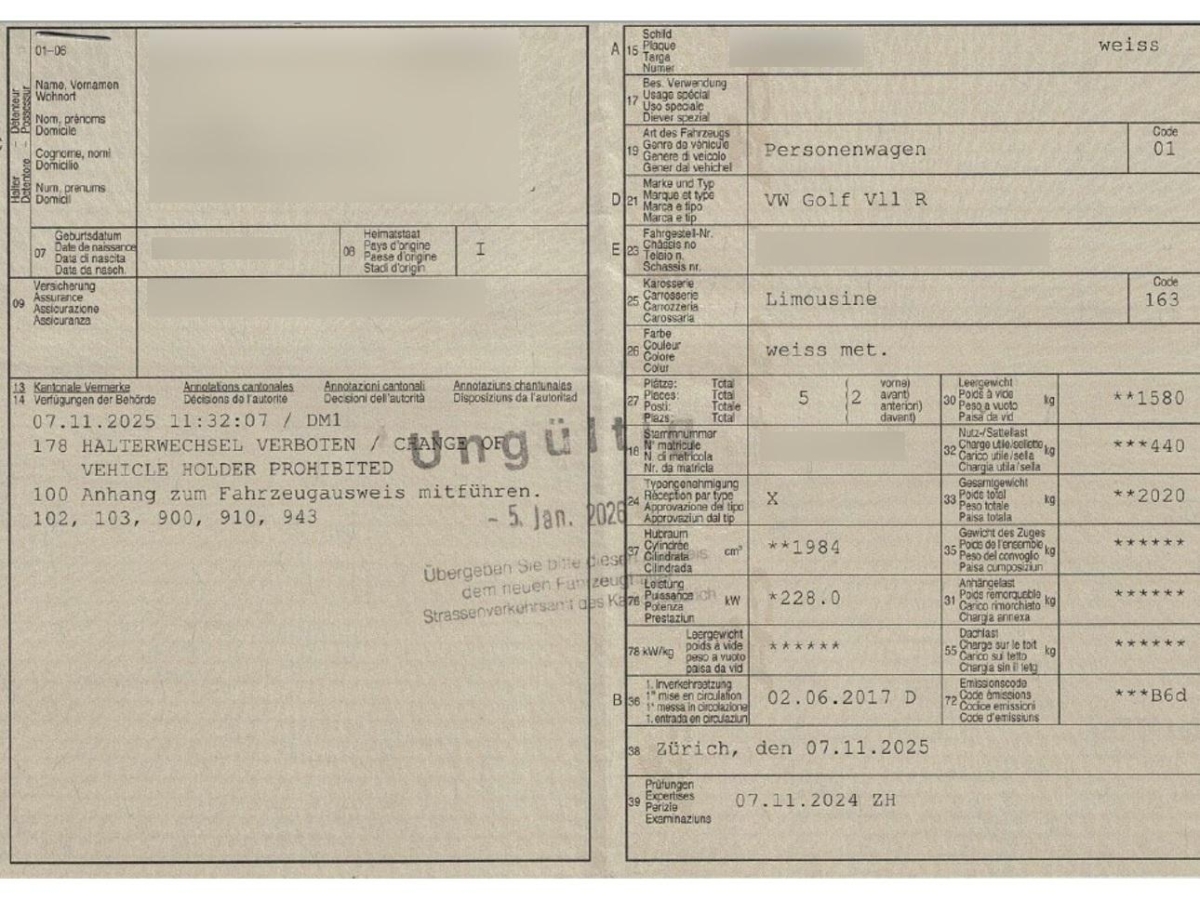 01-06
Halter - Détenteur
Detentore - Possessur
Name, Vornamen
Wohnort
Nom, prénoms
Domicile
Cognome, nomi
Domicilio
Num, prenums
Domicil
07 Geburtsdatum
Date de naissance
Data di nascita
Data da nasch.
08 Heimatstaat
Pays d'origine
Paese d'origine
Stadi d'origin
I
09 Versicherung
Assurance
Assicurazione
Assicuranza
13 Kantonale Vermerke Annotations cantonales Annotazioni cantonali Annotaziuns chantunalas
14 Verfügungen der Behörde Décisions de l'autorité Decisioni dell'autorità Disposiziuns da l'autoritad
07.11.2025 11:32:07 / DM1
178 HALTERWECHSEL VERBOTEN / CHANGE OF
VEHICLE HOLDER PROHIBITED
100 Anhang zum Fahrzeugausweis mitführen.
102, 103, 900, 910, 943
Ungült
- 5. Jan. 2026
Übergeben Sie bitte diesen
dem neuen Fahrzeug
Strassenverkehrsamt des Ka
A 15 Schild
Plaque
Targa
Numer
weiss
17 Bes. Verwendung
Usage spécial
Uso speciale
Diever spezial
19 Art des Fahrzeugs
Genre de véhicule
Genere di veicolo
Gener dal vehichel
Personenwagen
Code
01
D 21 Marke und Typ
Marque et type
Marca e tipo
Marca e tip
VW Golf Vll R
E 23 Fahrgestell-Nr.
Châssis no
Telaio n.
Schassis nr.
25 Karosserie
Carrosserie
Carrozzeria
Carossaria
Limousine
Code
163
26 Farbe
Couleur
Colore
Colur
weiss met.
27 Plätze: Total
Places: Total
Posti: Totale
Plazs: Total
5 (2 vorne)
( avant)
( anteriori)
( davant)
30 Leergewicht
Poids à vide
Peso a vuoto
Paisa da vid
kg
**1580
18 Stammnummer
N° matricule
N. di matricola
Nr. da matricla
32 Nutz-/Sattellast
Charge utile/sellette
Carico utile/sella
Chargia utila/sella
kg
***440
24 Typengenehmigung
Réception par type
Approvazione del tipo
Approvaziun dal tip
X
33 Gesamtgewicht
Poids total
Peso totale
Paisa totala
kg
**2020
37 Hubraum
Cylindrée
Cilindrata
Cilindrada
cm³
**1984
35 Gewicht des Zuges
Poids de l'ensemble
Peso del convoglio
Paisa cumposiziun
kg
******
76 Leistung
Puissance
Potenza
Prestaziun
kW
*228.0
31 Anhängelast
Poids remorquable
Carico rimorchiato
Chargia annexa
kg
******
78 kW/kg Leergewicht
poids à vide
peso a vuoto
paisa da vid
******
55 Dachlast
Charge sur le toit
Carico sul tetto
Chargia sin il tetg
kg
******
B 36 1. Inverkehrsetzung
1re mise en circulation
1a messa in circolazione
1. entrada en circulaziun
02.06.2017 D
72 Emissionscode
Code émissions
Codice emissioni
Code d'emissiuns
***B6d
38 Zürich, den 07.11.2025
39 Prüfungen
Expertises
Perizie
Examinaziuns
07.11.2024 ZH